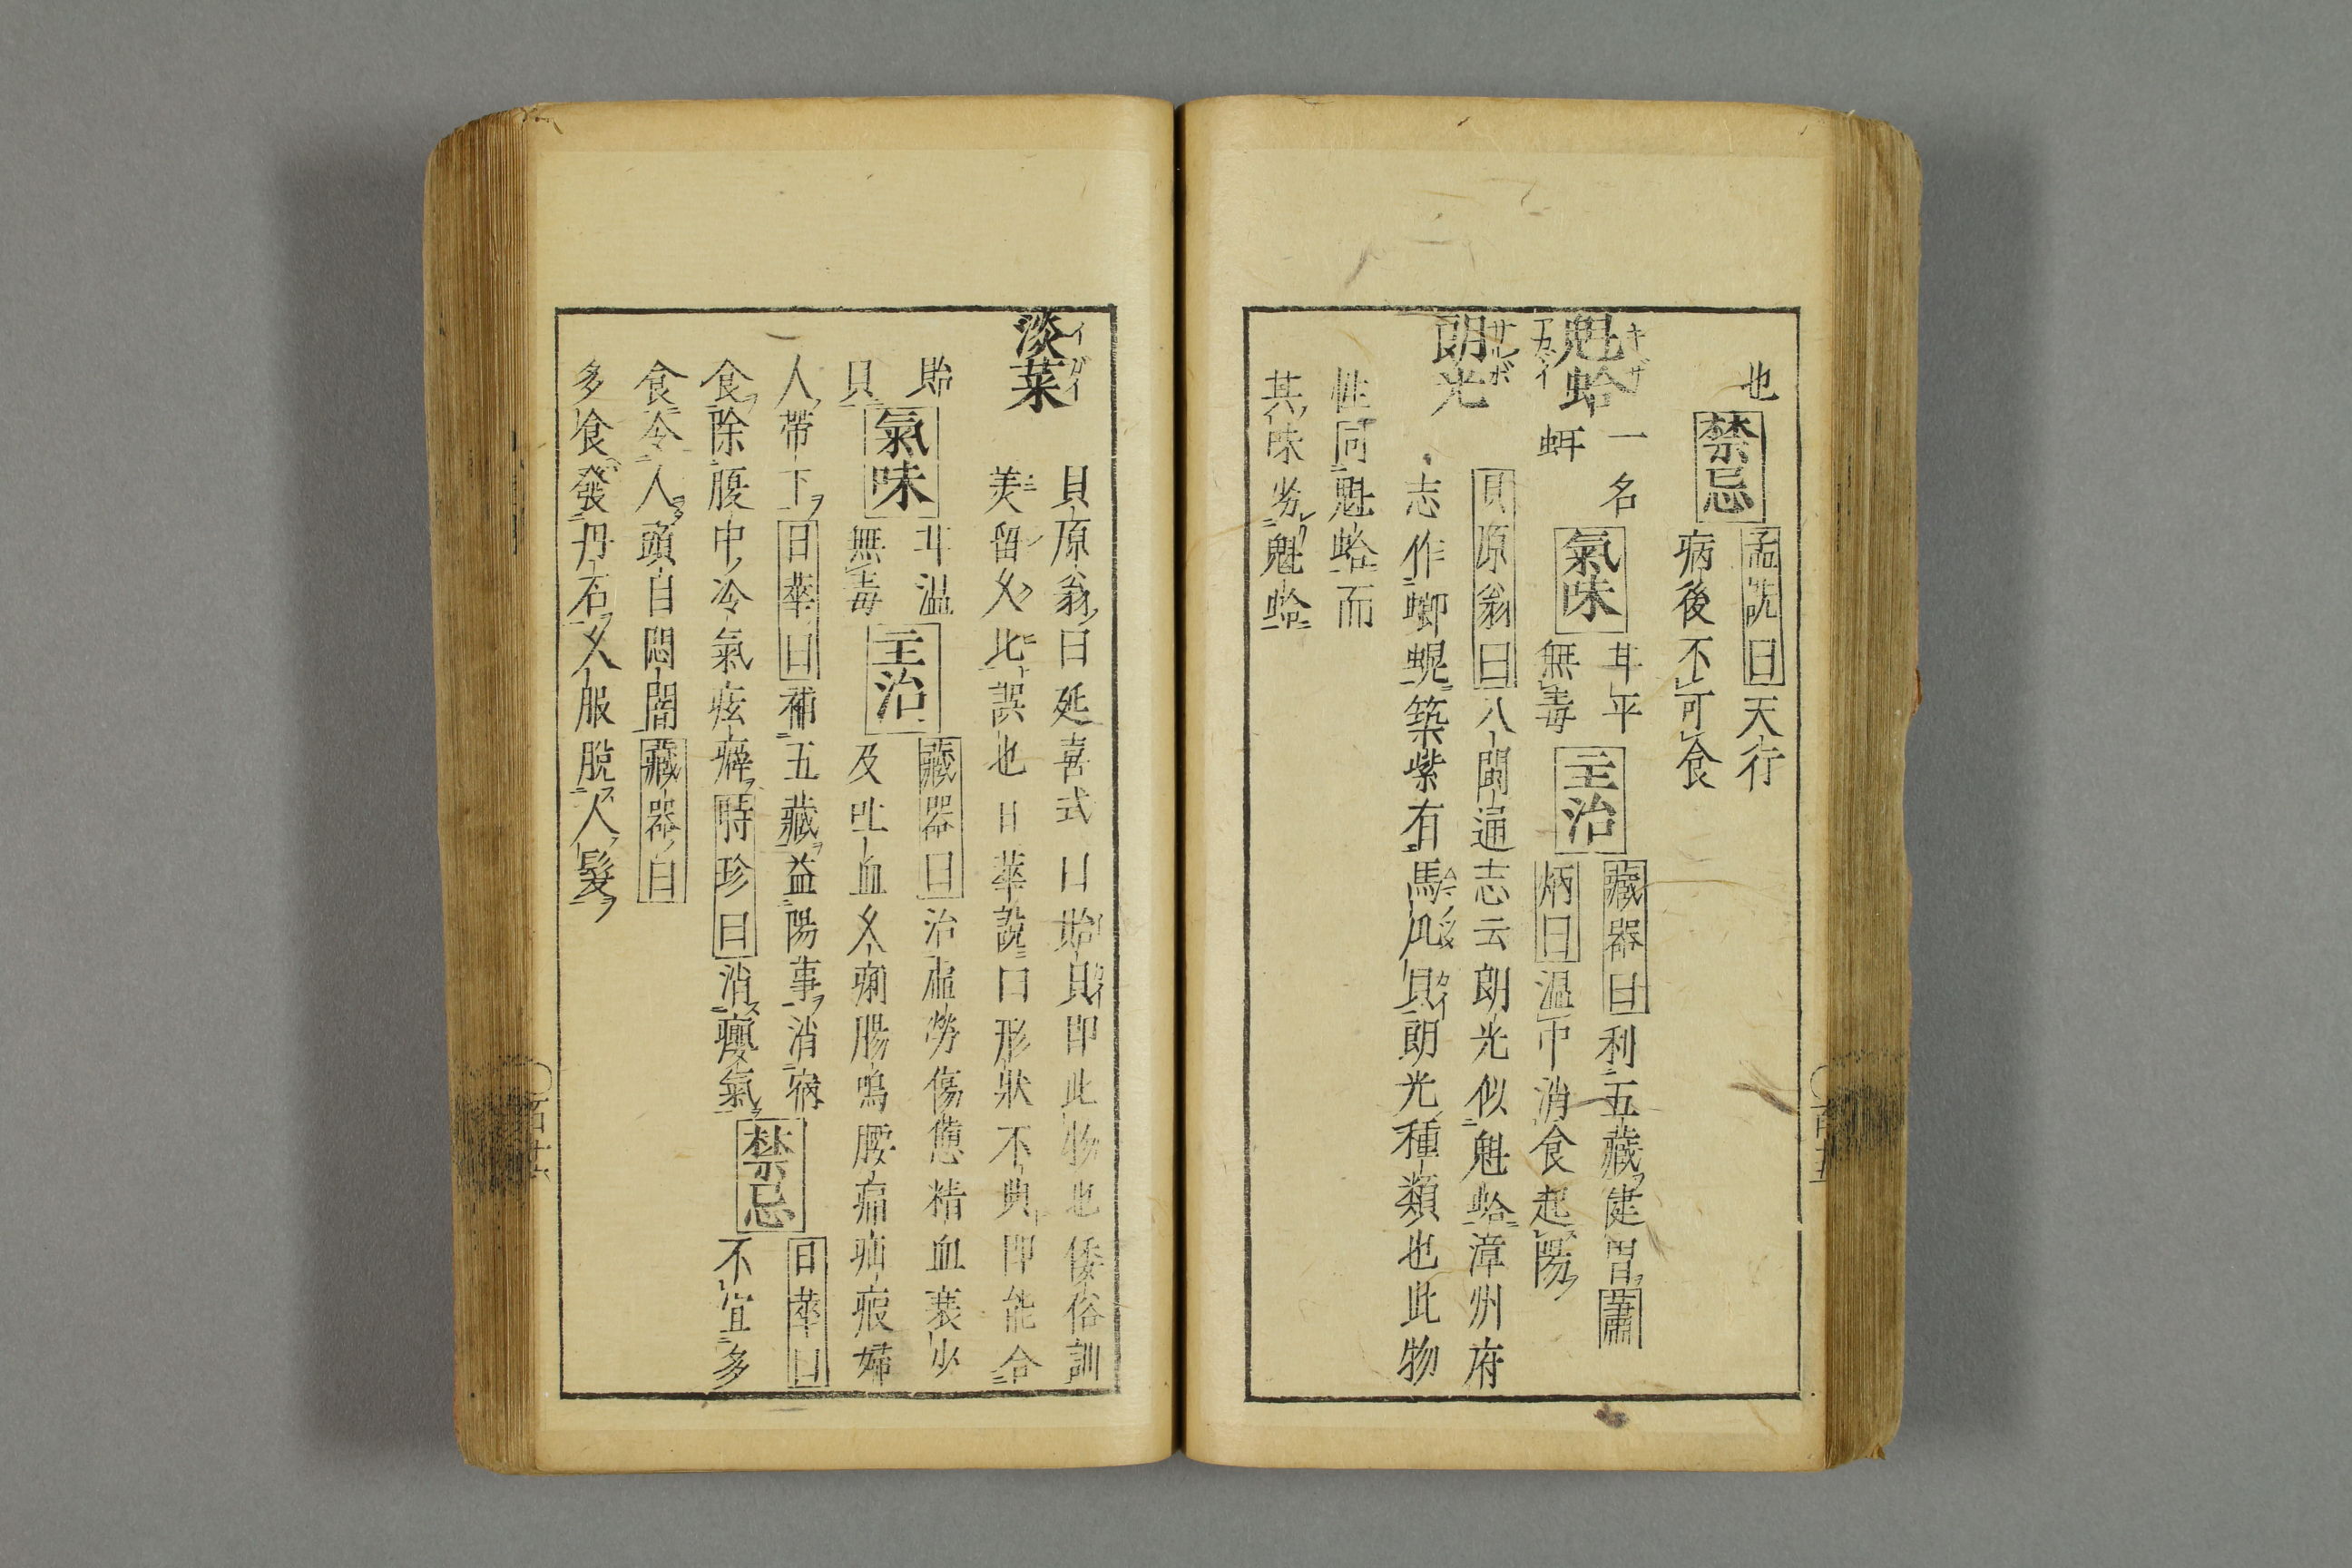 也
禁忌
孟詵曰天行
病後不可食
魁蛤
キサ
一名
蚶
氣味
甘平
無毒
主治
藏器曰利五藏健胃蕭
炳曰温中消食起陽
朗光
サルボ
貝原翁曰八閩通志云朗光似魁蛤漳州府
志作螂蜆築紫有馬爪貝朗光種類也此物
性同魁蛤而
其味劣魁蛤
淡菜
イガイ
貝原翁曰延喜式曰貽貝即此物也倭俗訓
美留久比誤也日華說曰形狀不典即能合
貽
貝
氣味
甘温
無毒
主治
藏器曰治虛勞傷憊精血衰少
及吐血久痢腸鳴腰痛疝瘕婦
人帶下日華曰補五藏益陽事消宿
食除腹中冷氣痃癖時珍曰消癭氣
禁忌
日華曰
不宜多
食令人頭目悶闇藏器曰
多食發丹石久服脫人髮